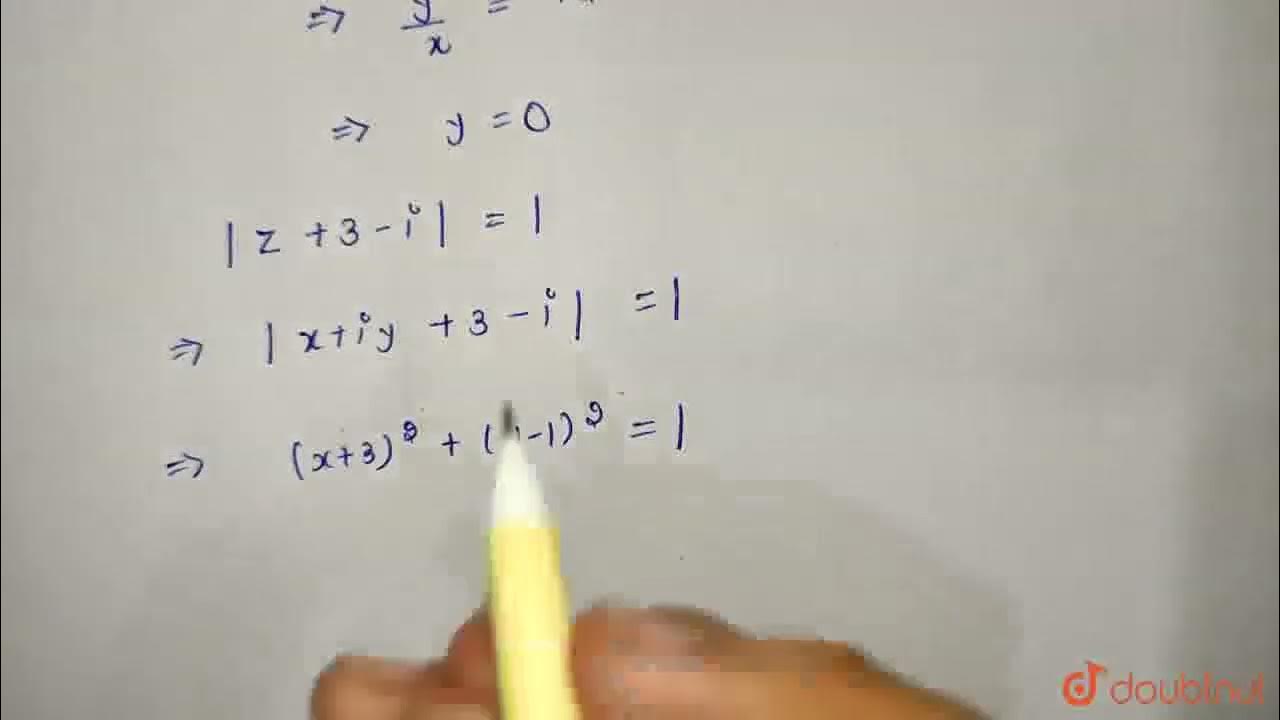 ⇒ y/x =
⇒ y = 0
|z + 3 - i| = 1
⇒ |x + iy + 3 - i| = 1
⇒ (x+3)² + ( -1)² = 1
doubtnut